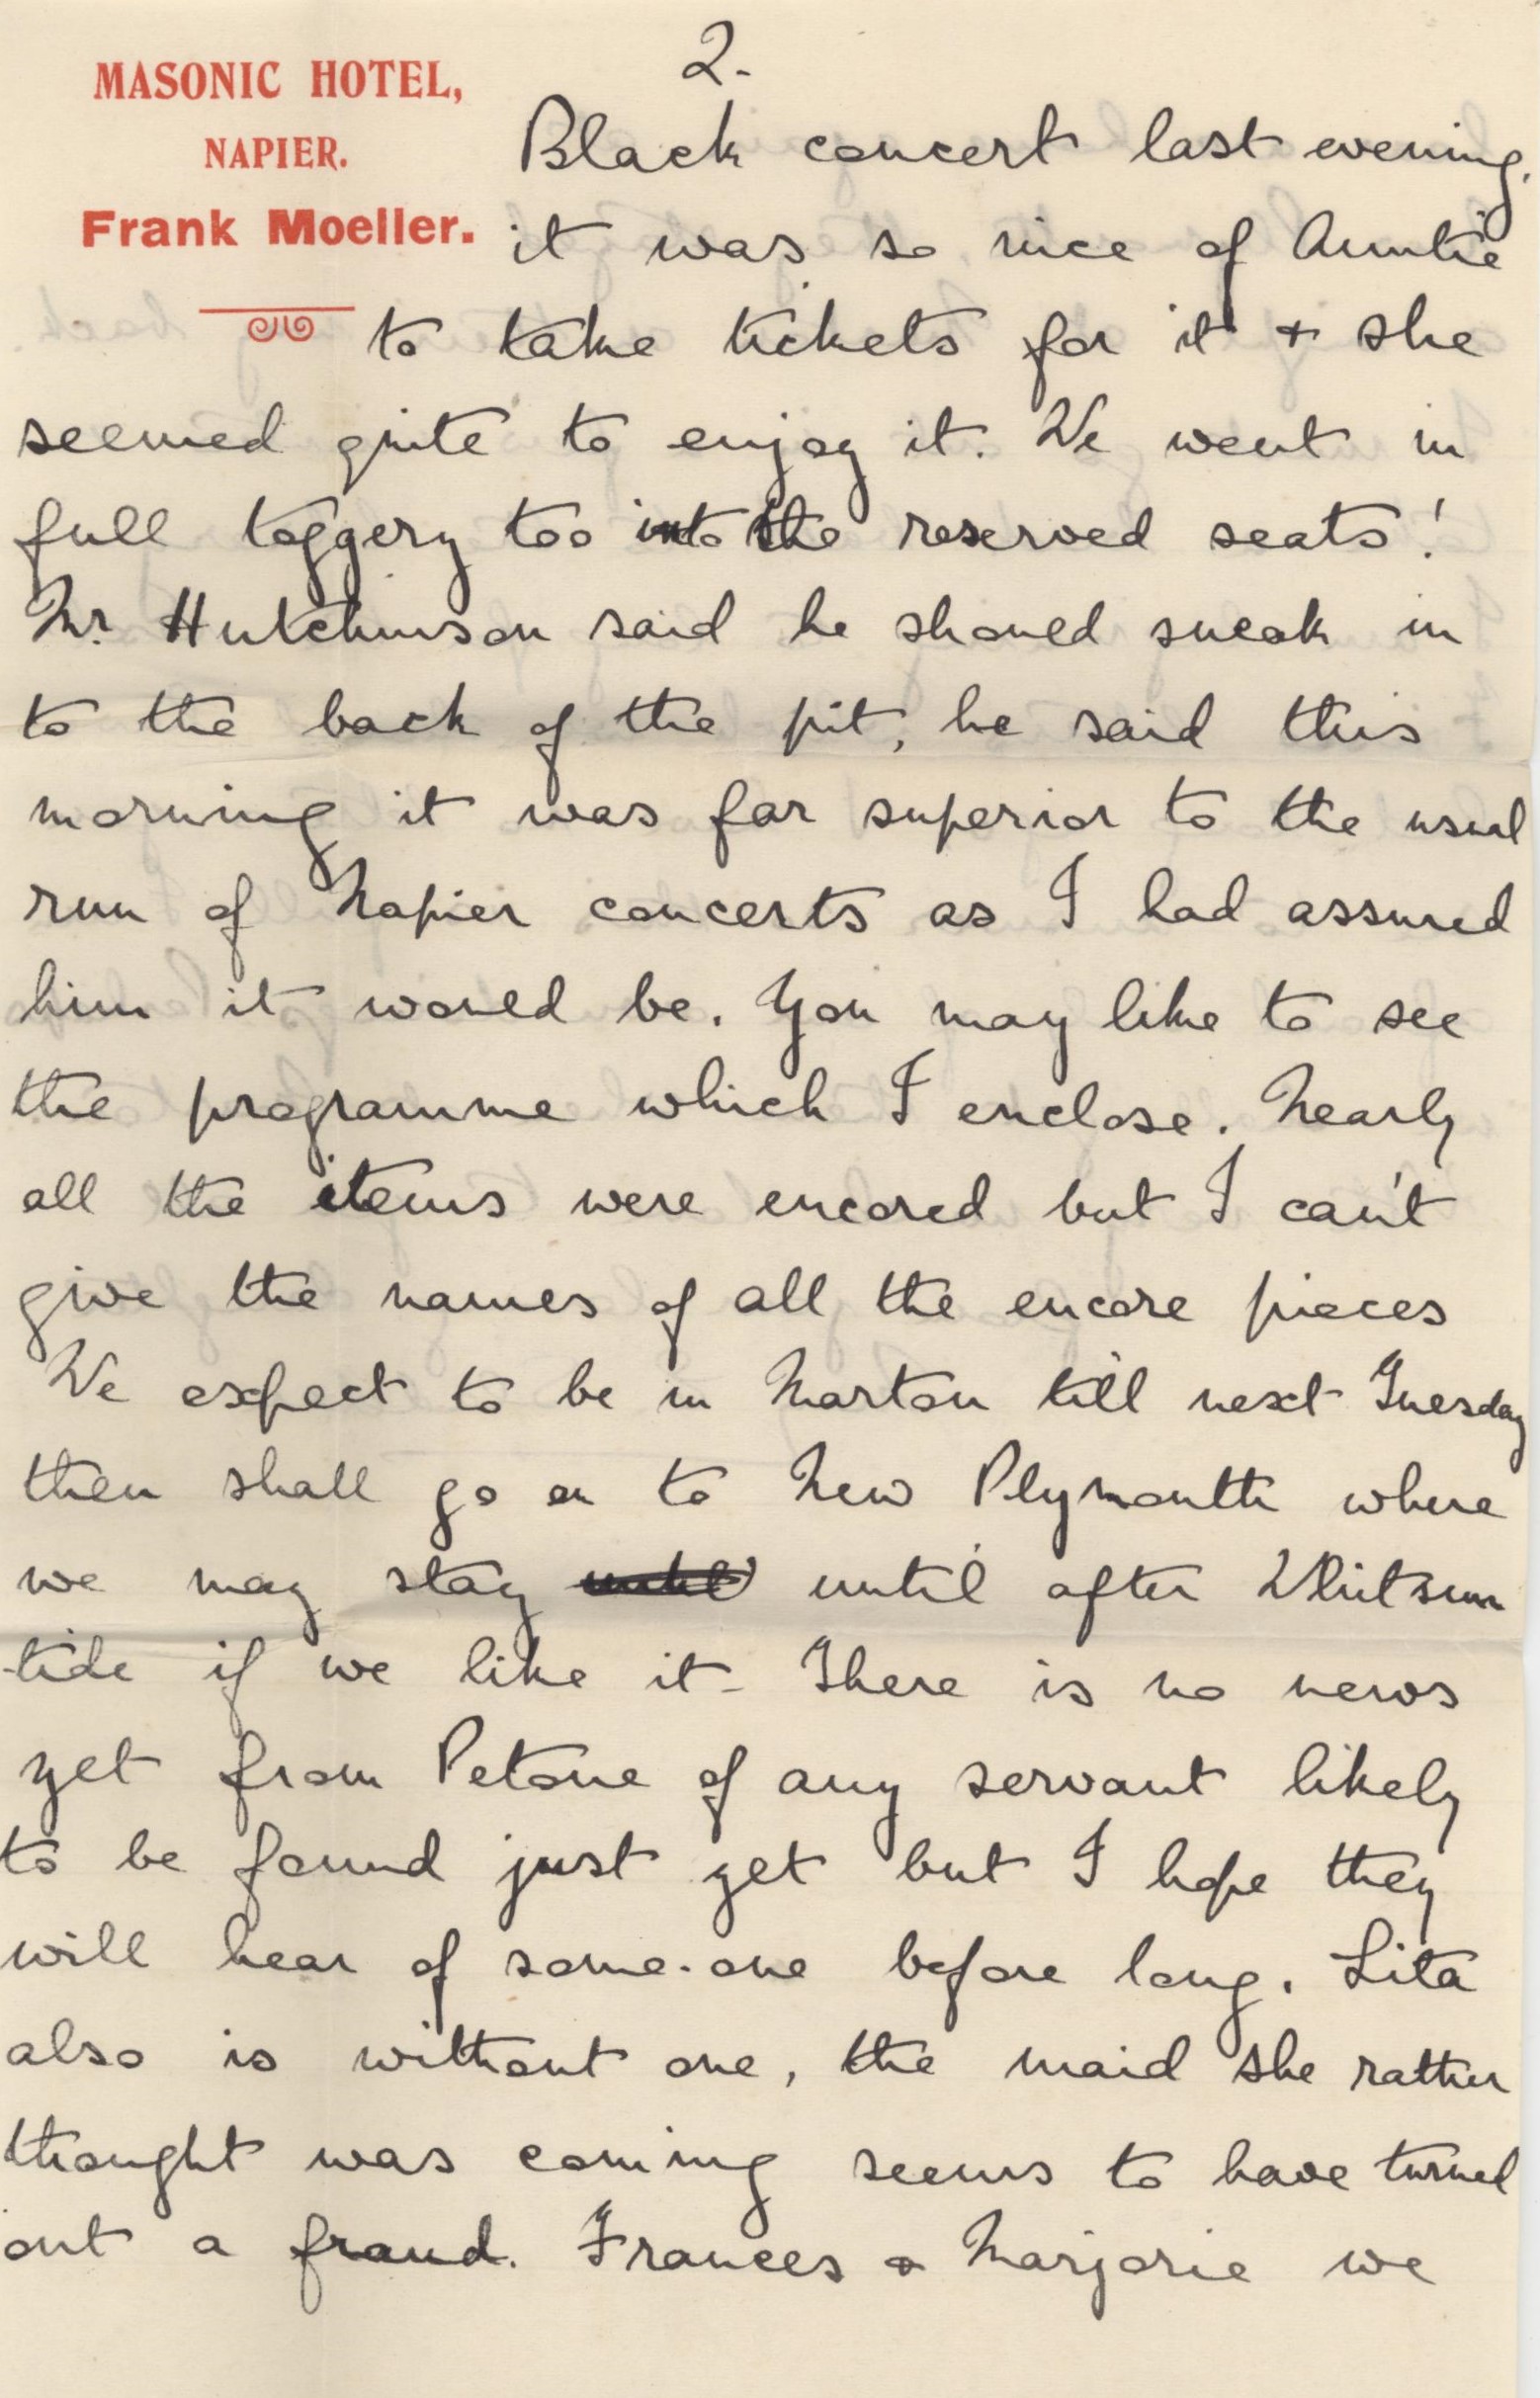 MASONIC HOTEL,
NAPIER.
Frank Moeller.
2.
Black concert last evening,
it was so nice of Auntie
to take tickets for it + she
seemed quite to enjoy it. We went in
full toggery too into the reserved seats!
Mr. Hutchinson said he should sneak in
to the back of the pit, he said this
morning it was far superior to the usual
run of Napier concerts as I had assured
him it would be. You may like to see
the programme which I enclose. Nearly
all the items were encored but I can't
give the names of all the encore pieces
We expect to be in Marton till next Tuesday
then shall go on to New Plymouth where
we may stay until until after Whitsun
-tide if we like it - There is no news
yet from Petone of any servant likely
to be found just yet but I hope they
will hear of some-one before long. Lita
also is without one, the maid she rather
thought was coming seems to have turned
out a fraud. Frances + Marjorie we